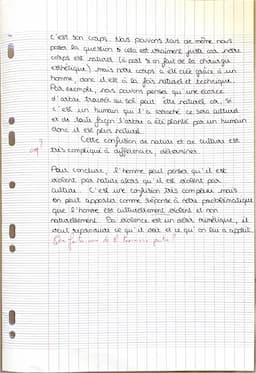 c'est son corps. Nous pouvons tout de même nous
poser la question si cela est vraiment juste car notre
corps est naturel (à part si on fait de la chirurgie
esthétique) mais notre corps a été créé grâce à un
homme, donc il est à la fois naturel et technique.
Par exemple, nous pouvons penser qu'une écorce
d'arbre trouvée au sol peut être naturel or, si
c'est un humain qui l'a arraché ce sera culturel
et de toute façon l'arbre a été planté par un humain
donc il est plus naturel.
Cette confusion de nature et de culture est
très compliqué à différencier, déterminer.
Pour conclure, l'homme peut penser qu'il est
violent par nature alors qu'il est violent par
culture. C'est une confusion très complexe mais
on peut apporter comme réponse à notre problématique
que l'homme est culturellement violent et non
naturellement. La violence est un désir mimétique, il
veut reproduire ce qu'il voit et ce qu'on lui a appris.